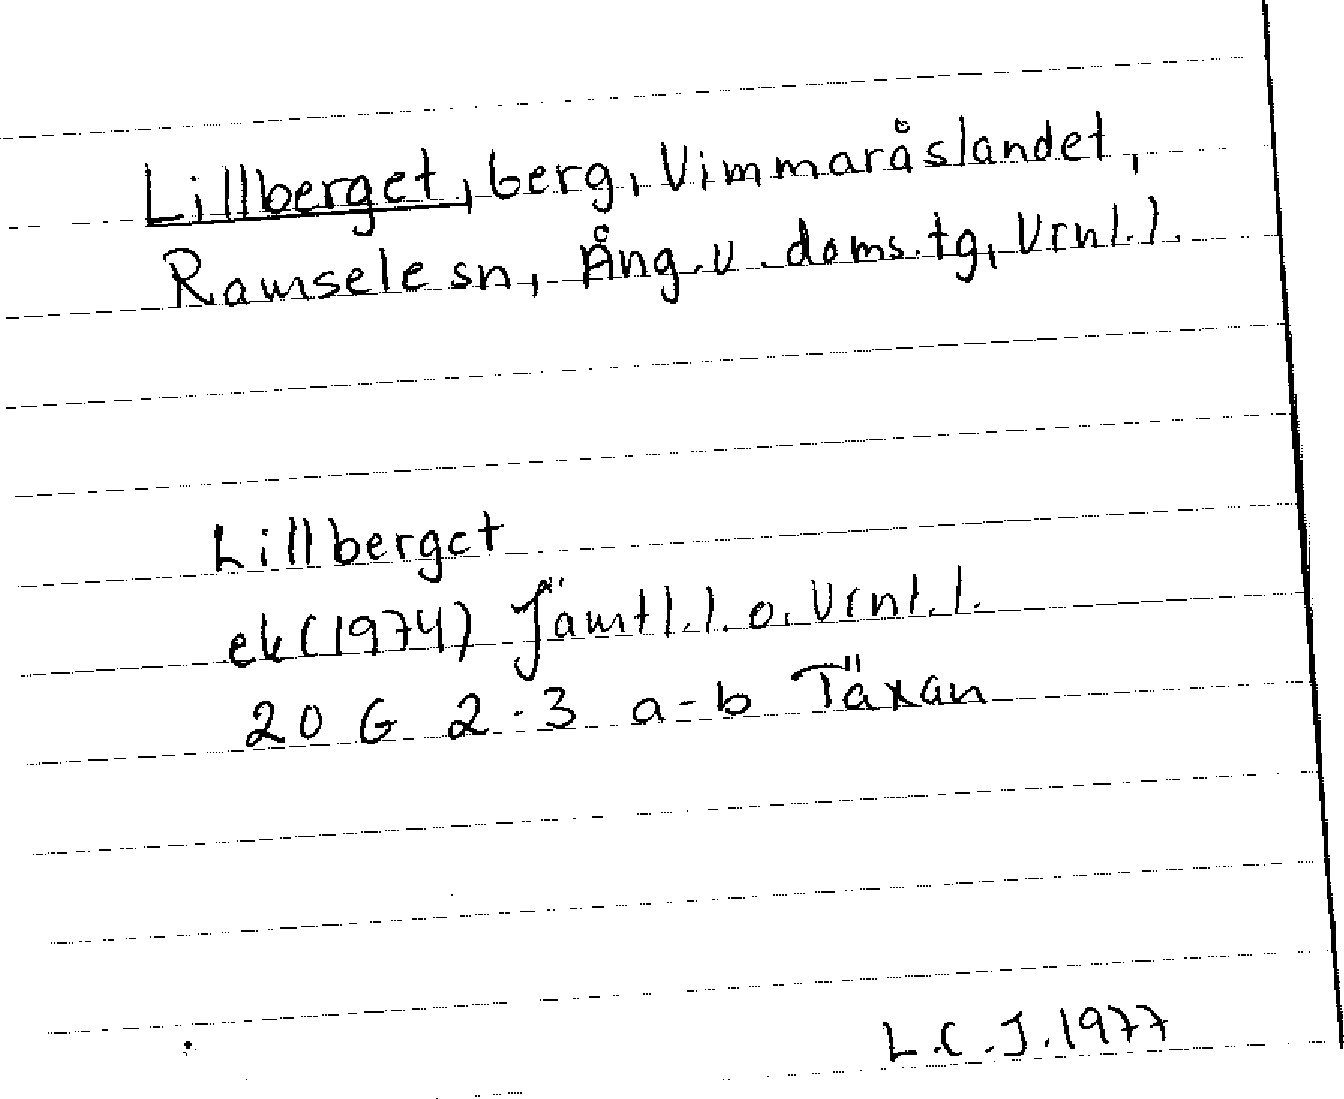 Lillberget, berg, Vimmaråslandet,
Ramsele sn, Ång. v. doms. tg, Vrnl. l.
Lillberget
ek (1974) Jämtl. l. o. Vrnl. l.
20 G 2-3 a-b Täxan
L.C.J. 1977